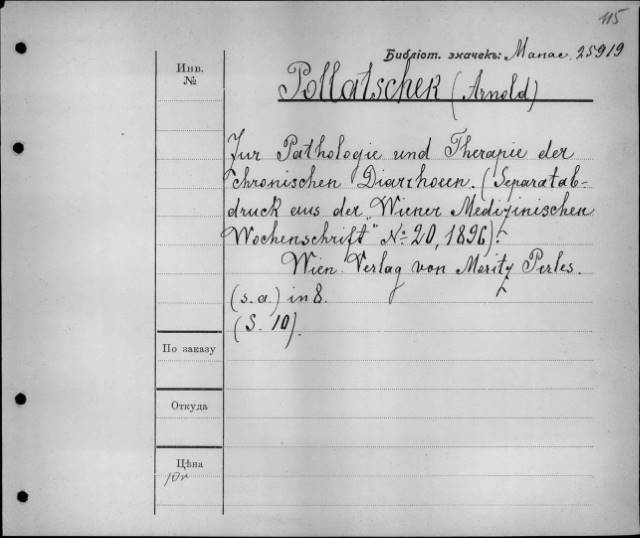 115
Библіот. значекъ: Манас. 25919
Инв.
№
Pollatschek (Arnold)
Zur Pathologie und Therapie der
chronischen Diarrhoeen. (Separatab-
druck aus der „Wiener Medizinischen
Wochenschrift" № 20, 1896).
Wien. Verlag von Moritz Perles.
(s. a.) in 8.
(S. 10).
По заказу
Откуда
Цѣна
10к